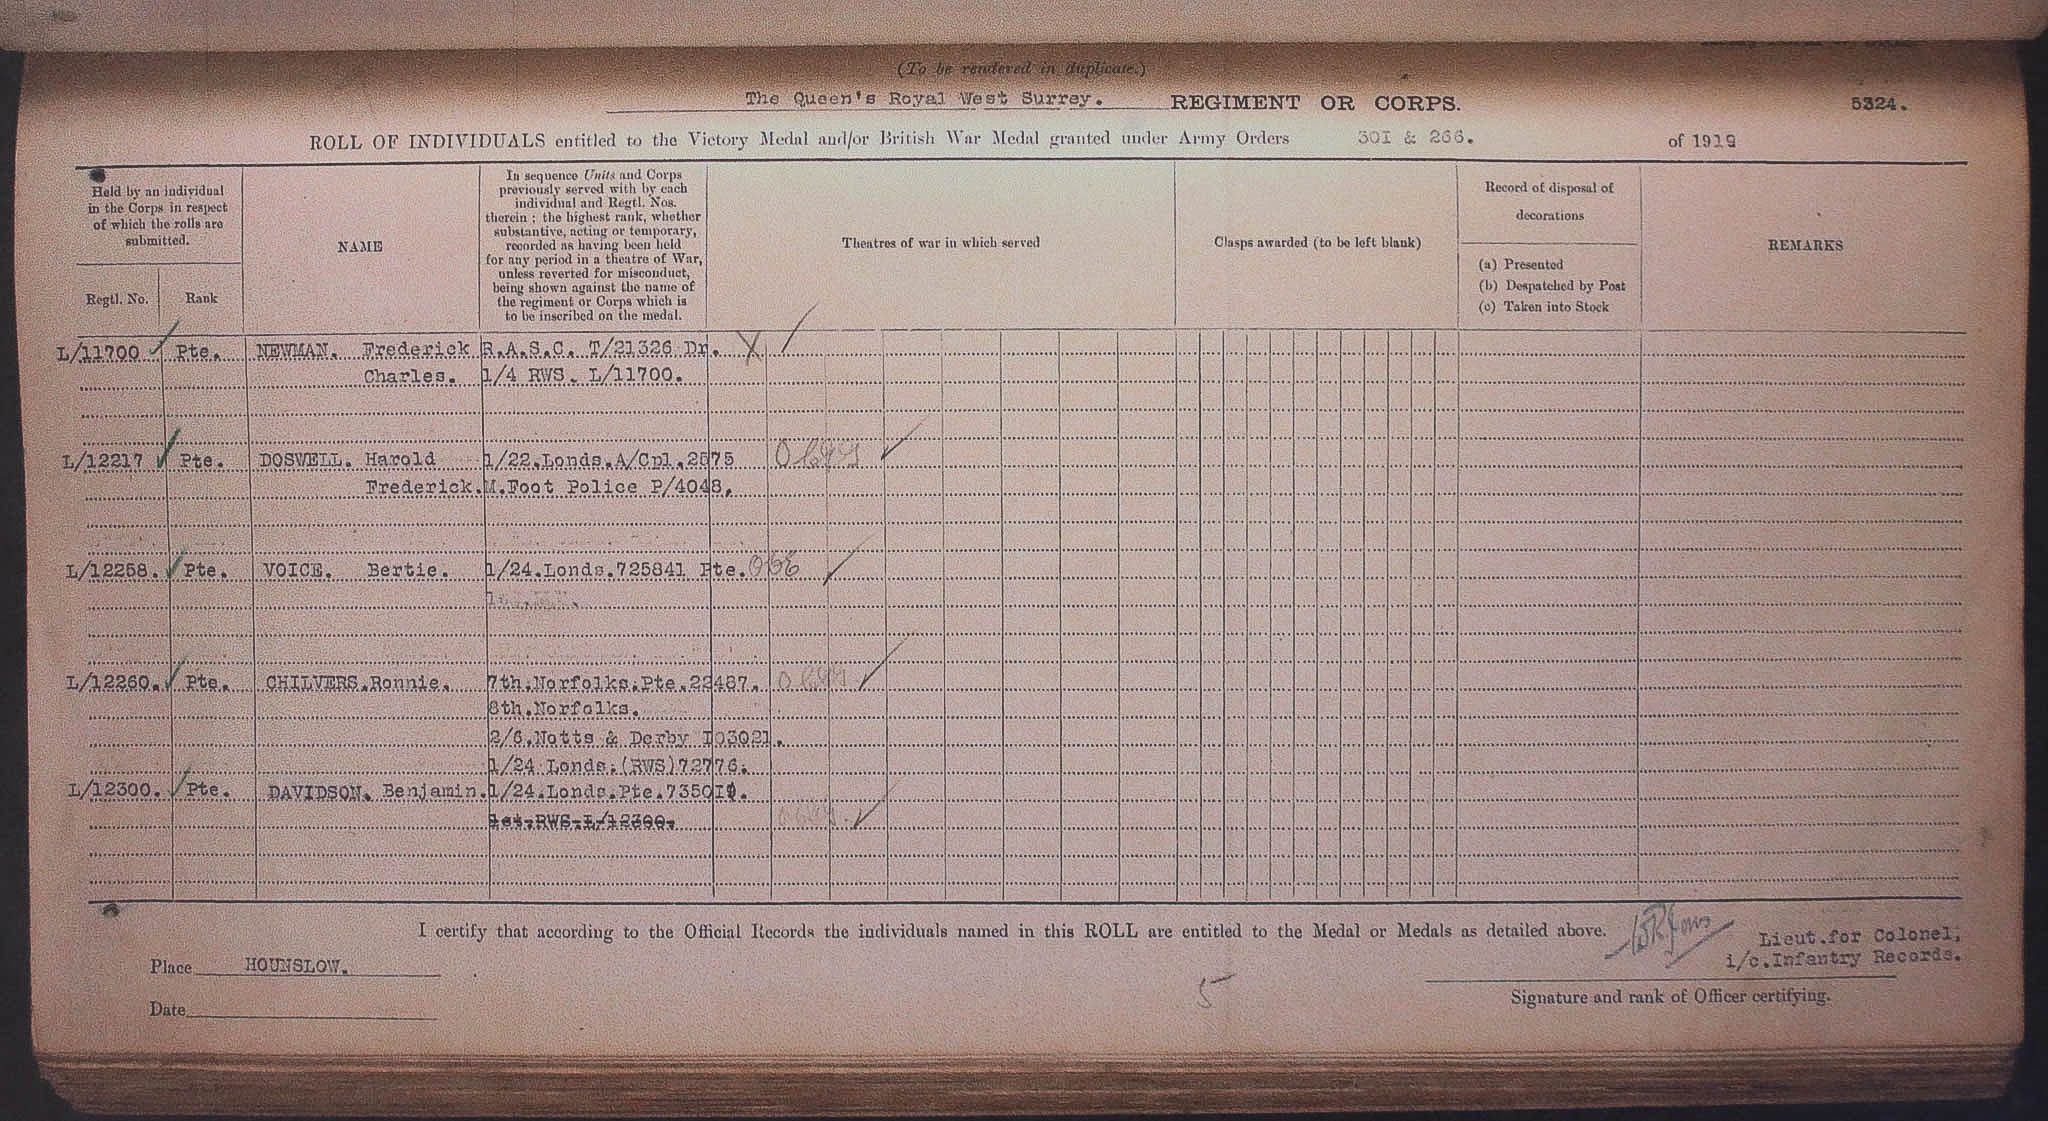 (To be rendered in duplicate.)
The Queen's Royal West Surrey. REGIMENT OR CORPS. 5324.
ROLL OF INDIVIDUALS entitled to the Victory Medal and/or British War Medal granted under Army Orders 30I & 266. of 1919
Held by an individual
in the Corps in respect
of which the rolls are
submitted.
Regtl. No. Rank
NAME
In sequence Units and Corps
previously served with by each
individual and Regtl. Nos.
therein ; the highest rank, whether
substantive, acting or temporary,
recorded as having been held
for any period in a theatre of War,
unless reverted for misconduct,
being shown against the name of
the regiment or Corps which is
to be inscribed on the medal.
Theatres of war in which served
Clasps awarded (to be left blank)
Record of disposal of
decorations
(a) Presented
(b) Despatched by Post
(c) Taken into Stock
REMARKS
L/11700 Pte. NEWMAN. Frederick R.A.S.C. T/21326 Dr. X
Charles. 1/4 RWS. L/11700.
L/12217 Pte. DOSWELL. Harold 1/22.Londs.A/Cpl.2575
Frederick. M.Foot Police P/4048.
L/12258. Pte. VOICE. Bertie. 1/24.Londs.725841 Pte.
L/12260. Pte. CHILVERS.Ronnie. 7th.Norfolks.Pte.22487.
8th.Norfolks.
2/6.Notts & Derby I03021.
1/24 Londs.(RWS)72776.
L/12300. Pte. DAVIDSON. Benjamin. 1/24.Londs.Pte.
1st.RWS.L/12300.
I certify that according to the Official Records the individuals named in this ROLL are entitled to the Medal or Medals as detailed above.
Lieut.for Colonel,
i/c.Infantry Records.
Place HOUNSLOW.
5
Signature and rank of Officer certifying.
Date